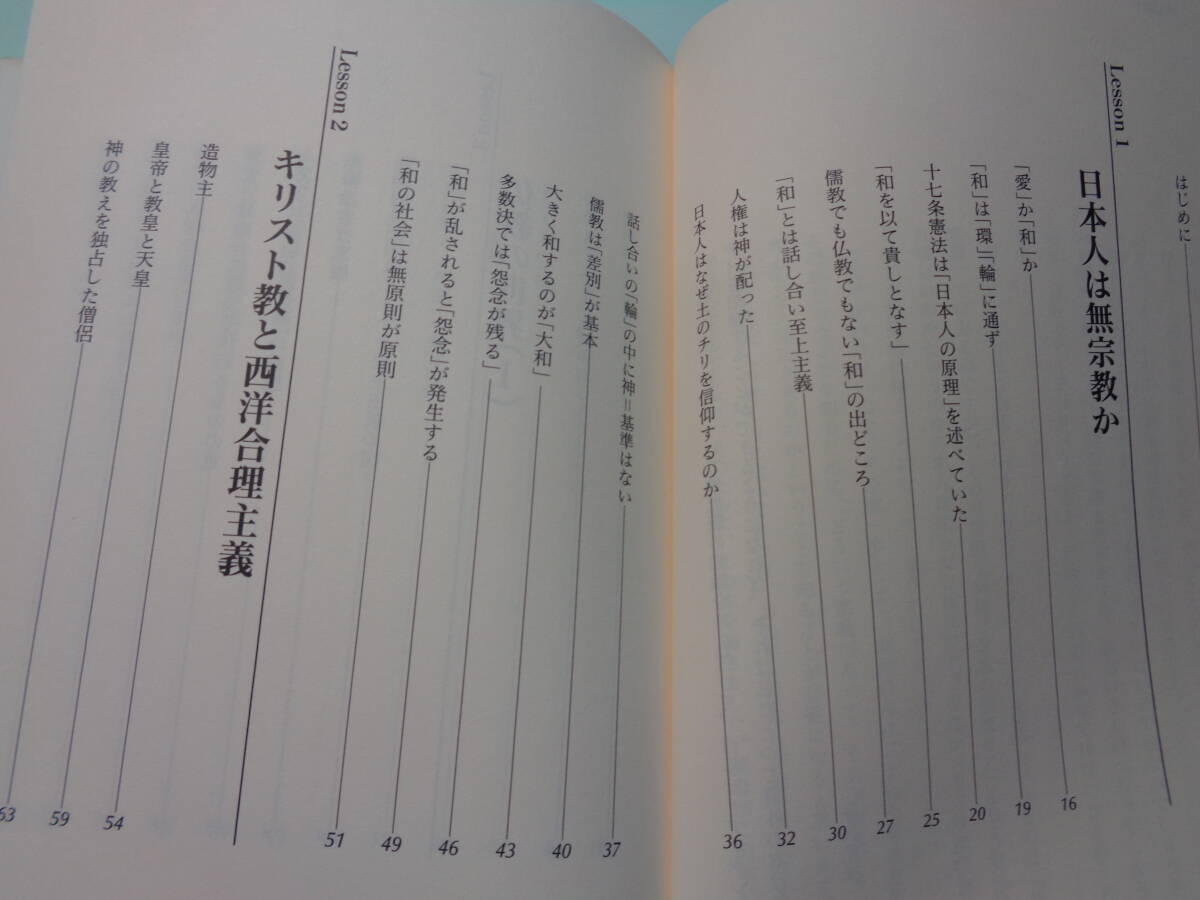 はじめに
Lesson 1
日本人は無宗教か
「愛」か「和」か 16
「和」は「環」「輪」に通ず 19
十七条憲法は「日本人の原理」を述べていた 20
「和を以て貴しとなす」 25
儒教でも仏教でもない「和」の出どころ 27
「和」とは話し合い至上主義 30
人権は神が配った 32
日本人はなぜ土のチリを信仰するのか 36
話し合いの「輪」の中に神＝基準はない 37
儒教は「差別」が基本 40
大きく和するのが「大和」 43
多数決では「怨念が残る」 46
「和」が乱されると「怨念」が発生する 49
「和の社会」は無原則が原則 51
Lesson 2
キリスト教と西洋合理主義
造物主 54
皇帝と教皇と天皇 59
神の教えを独占した僧侶 63